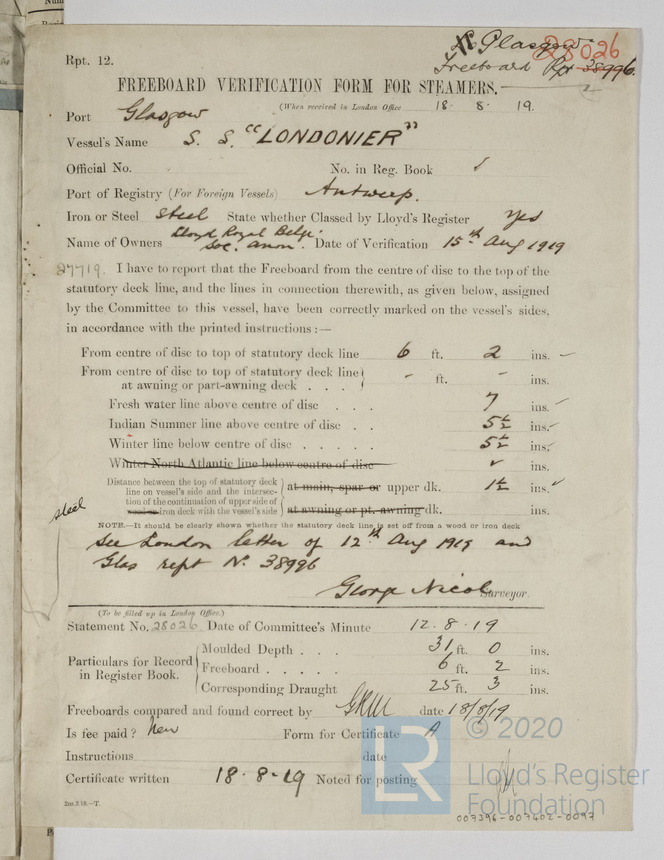 Glasgow 28026
Rpt. 12.
Freeboard Rpt 38996.
FREEBOARD VERIFICATION FORM FOR STEAMERS.
(When received in London Office 18. 8. 19.
Port Glasgow
Vessel's Name S. S. "LONDONIER"
Official No. No. in Reg. Book ✓
Port of Registry (For Foreign Vessels) Antwerp.
Iron or Steel Steel State whether Classed by Lloyd's Register Yes
Name of Owners Lloyd Royal Belge Soc. anon. Date of Verification 15th Aug 1919
27719. I have to report that the Freeboard from the centre of disc to the top of the
statutory deck line, and the lines in connection therewith, as given below, assigned
by the Committee to this vessel, have been correctly marked on the vessel's sides,
in accordance with the printed instructions :—
From centre of disc to top of statutory deck line 6 ft. 2 ins.
From centre of disc to top of statutory deck line
at awning or part-awning deck . . . - ft. - ins.
Fresh water line above centre of disc . . . 7 ins.
Indian Summer line above centre of disc . . 5½ ins.
Winter line below centre of disc . . . . . 5½ ins.
Winter North Atlantic line below centre of disc ✓ ins.
Distance between the top of statutory deck
line on vessel's side and the intersec- at main, spar or upper dk. 1½ ins. ✓
tion of the continuation of upper side of
steel wood or iron deck with the vessel's side at awning or pt. awning dk. ins.
NOTE.—It should be clearly shown whether the statutory deck line is set off from a wood or iron deck
See London letter of 12th Aug 1919 and
Glas rept No. 38996
George Nicol Surveyor.
(To be filled up in London Office.)
Statement No. 28026 Date of Committee's Minute 12. 8. 19
Particulars for Record in Register Book.
Moulded Depth . . . 31 ft. 0 ins.
Freeboard . . . . . 6 ft. 2 ins.
Corresponding Draught 25 ft. 3 ins.
Freeboards compared and found correct by date 18/8/19
Is fee paid? New Form for Certificate A
Instructions date
Certificate written 18. 8. 19 Noted for posting
LR © 2020
Lloyd's Register
Foundation
007396-007402-0097